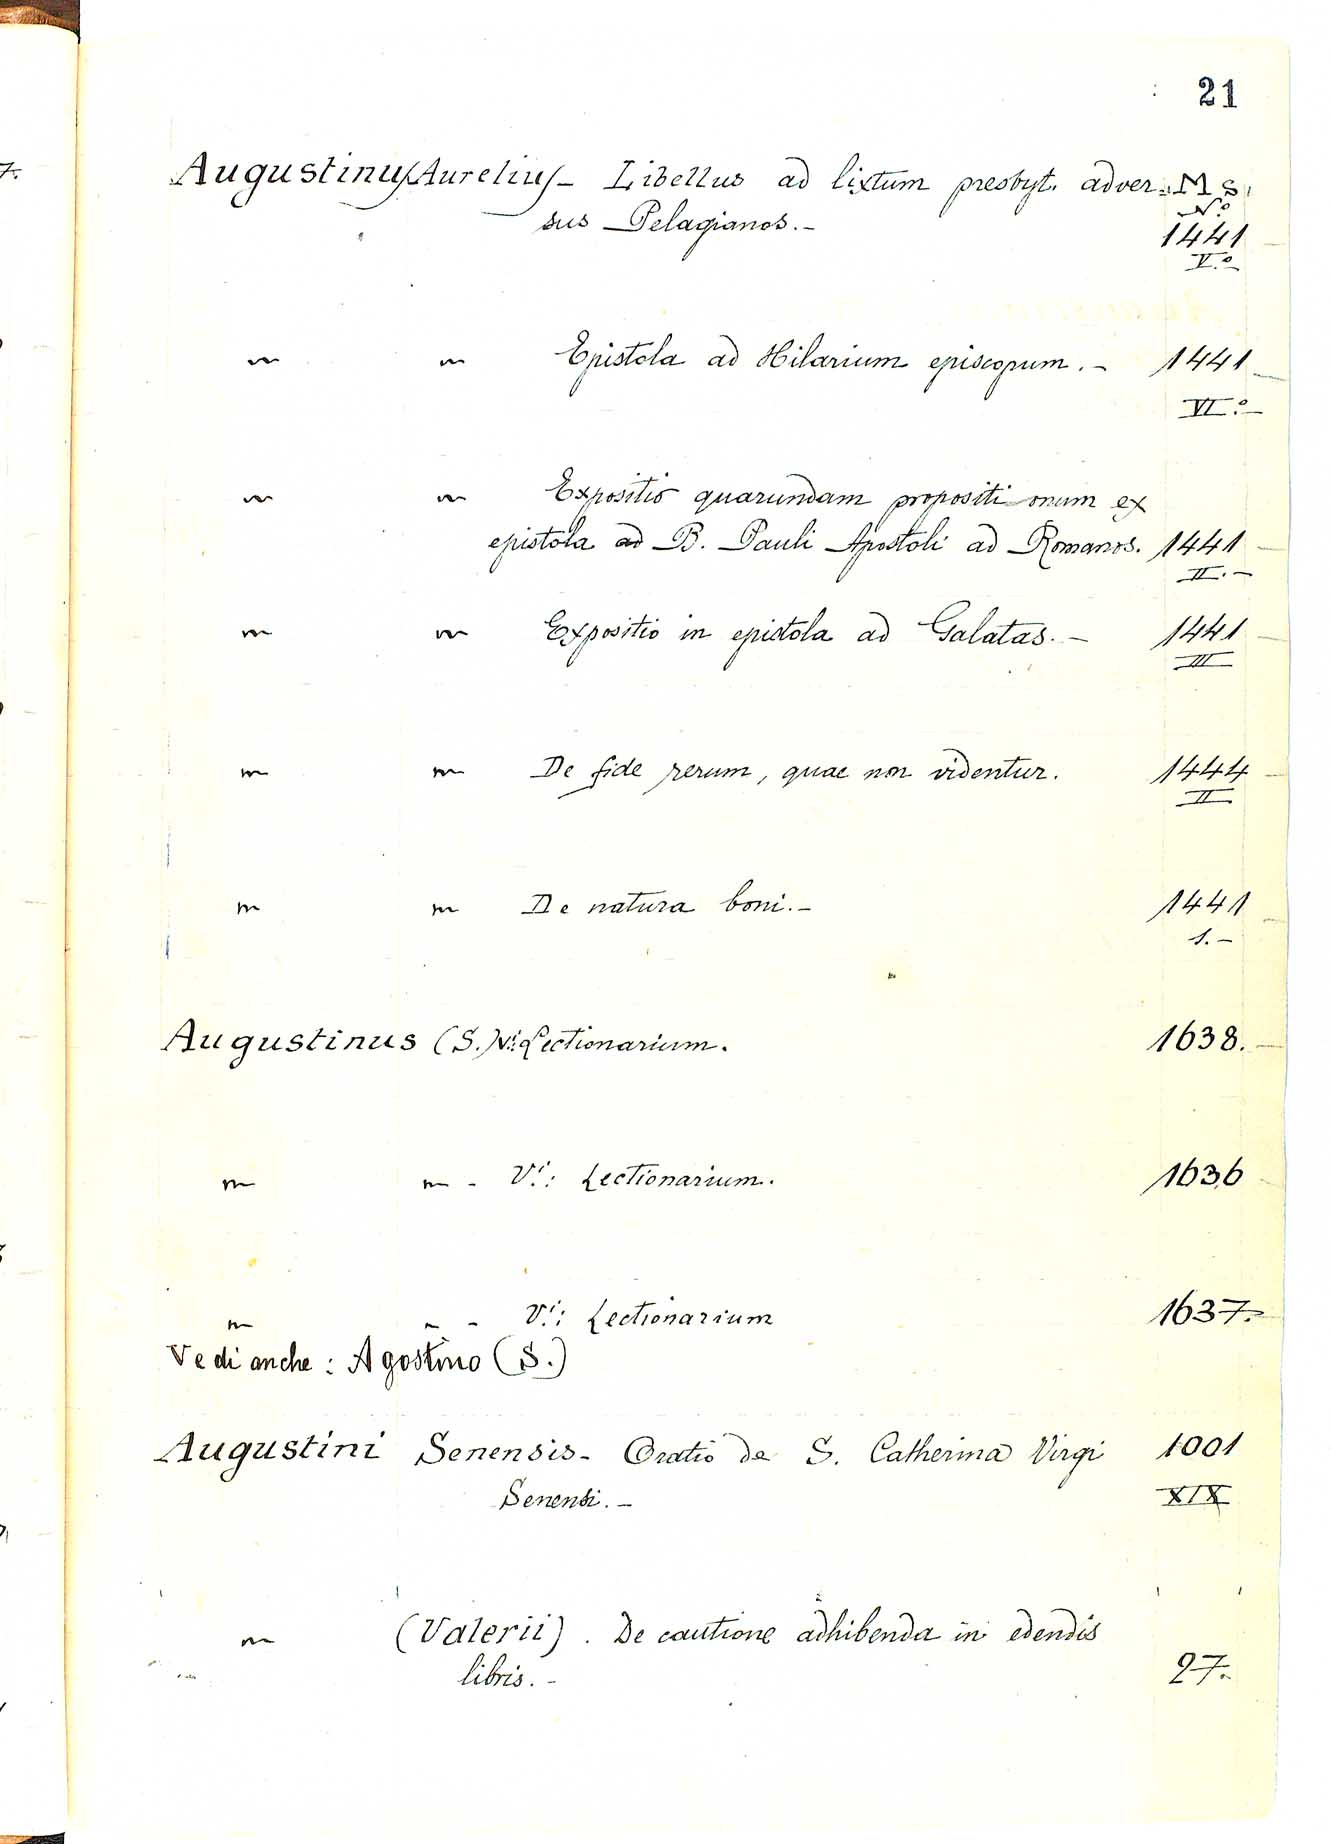 21
Augustinus Aurelius - Libellus ad lixtum presbyt. adver= MS.
N.º
sus Pelagianos. -
1441
V.º
" " Epistola ad Hilarium episcopum. - 1441
VI.º
" " Expositio quarundam propositionum ex
epistola ad B. Pauli Apostoli ad Romanos. 1441
II. -
" " Expositio in epistola ad Galatas. - 1441
III
" " De fide rerum, quae non videntur. 1444
II
" " De natura boni. - 1441
1. -
Augustinus (S.) V.i: Lectionarium. 1638.
" " - V.i: Lectionarium. 1636
" " - V.i: Lectionarium 1637.
Vedi anche: Agostino (S.)
Augustini Senensis - Oratio de S. Catherina Virgi 1001
Senensi. - XIX
" (Valerii). De cautione adhibenda in edendis
libris. - 27.